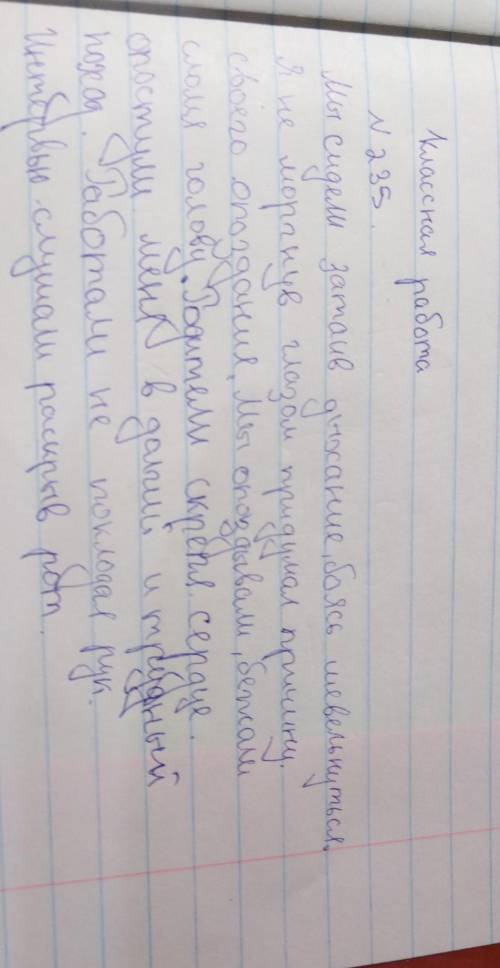 Классная работа
N 235.
Мы сидели затаив дыхание, боясь шевельнуться.
Я не моргнув глазом придумал причину
своего опоздания, мы опаздывали, бежали
сломя голову. Родители скрепя сердце.
опостили меня в далний и трудный
поход. Работали не покладая рук.
Интервью слушали раскрыв рот.